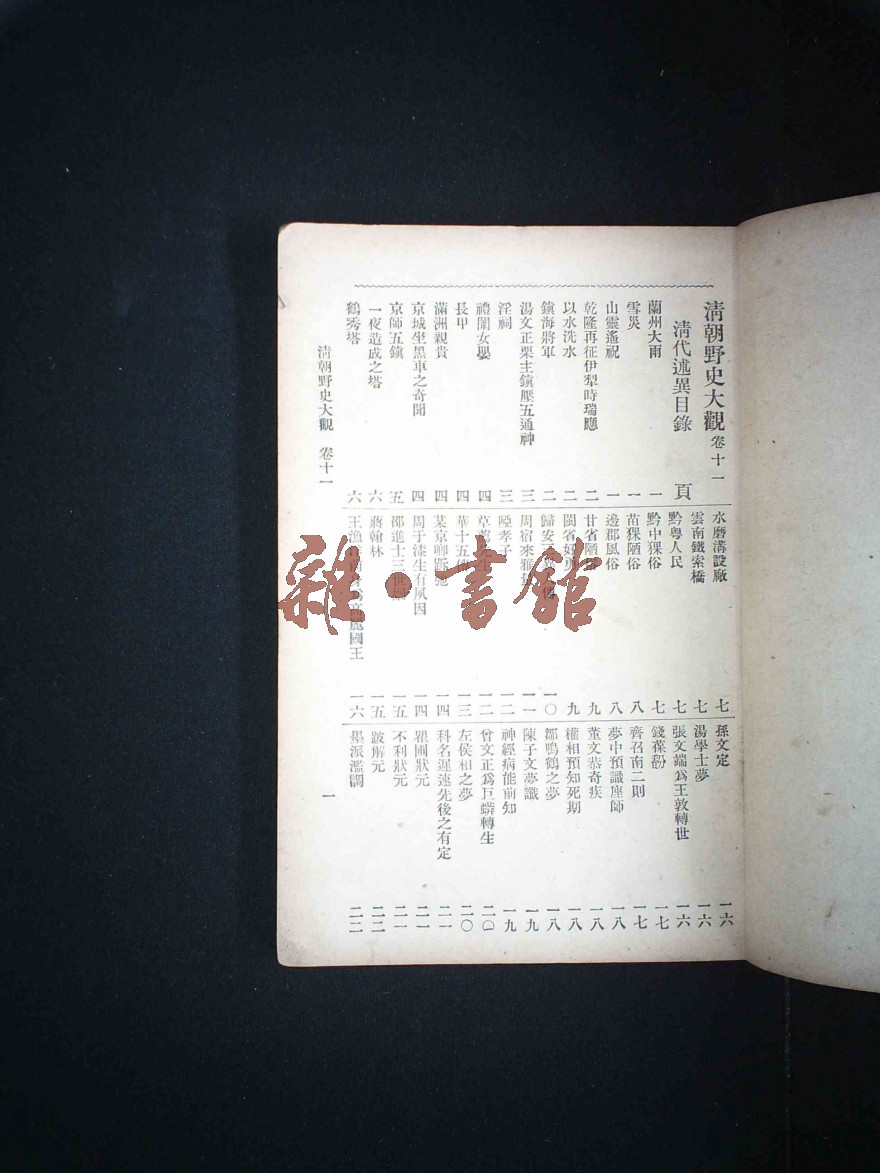 清朝野史大觀 卷十一
清代述異目錄 頁
蘭州大雨 一
雪災 一
山靈遙祝 一
乾隆再征伊犁時瑞應 二
以水洗水 二
鎭海將軍 二
湯文正栗主鎭壓五通神 三
淫祠 三
禮闈女嬰 四
長甲 四
滿洲親貴 四
京城坐黑車之奇聞 四
京師五鎭 五
一夜造成之塔 六
鶴秀塔 六
水磨溝設廠 七
雲南鐵索橋 七
黔粤人民 七
黔中猓俗 七
苗猓陋俗 八
邊郡風俗 八
甘省陋俗 九
閩省好男 九
歸安 一〇
周宿來雅 一一
啞孝子 一二
草 先生 一二
華十五 一三
某京卿跅弛 一四
周于漆生有夙因 一四
邵進士三世 一五
蔣翰林 一五
王漁洋 爲高麗國王 一六
孫文定 一六
湯學士夢 一六
張文端爲王敦轉世 一六
錢葆馚 一七
齊召南二則 一七
夢中預識座師 一八
董文恭奇疾 一八
權相預知死期 一八
鄒鳴鶴之夢 一八
陳子文夢讖 一九
神經病能前知 一九
曾文正爲巨蟒轉生 二〇
左侯相之夢 二〇
科名遲速先後之有定 二一
單圃狀元 二一
不利狀元 二一
跛解元 二二
墨派濫觴 二二
清朝野史大觀 卷十一 一
雜·書館